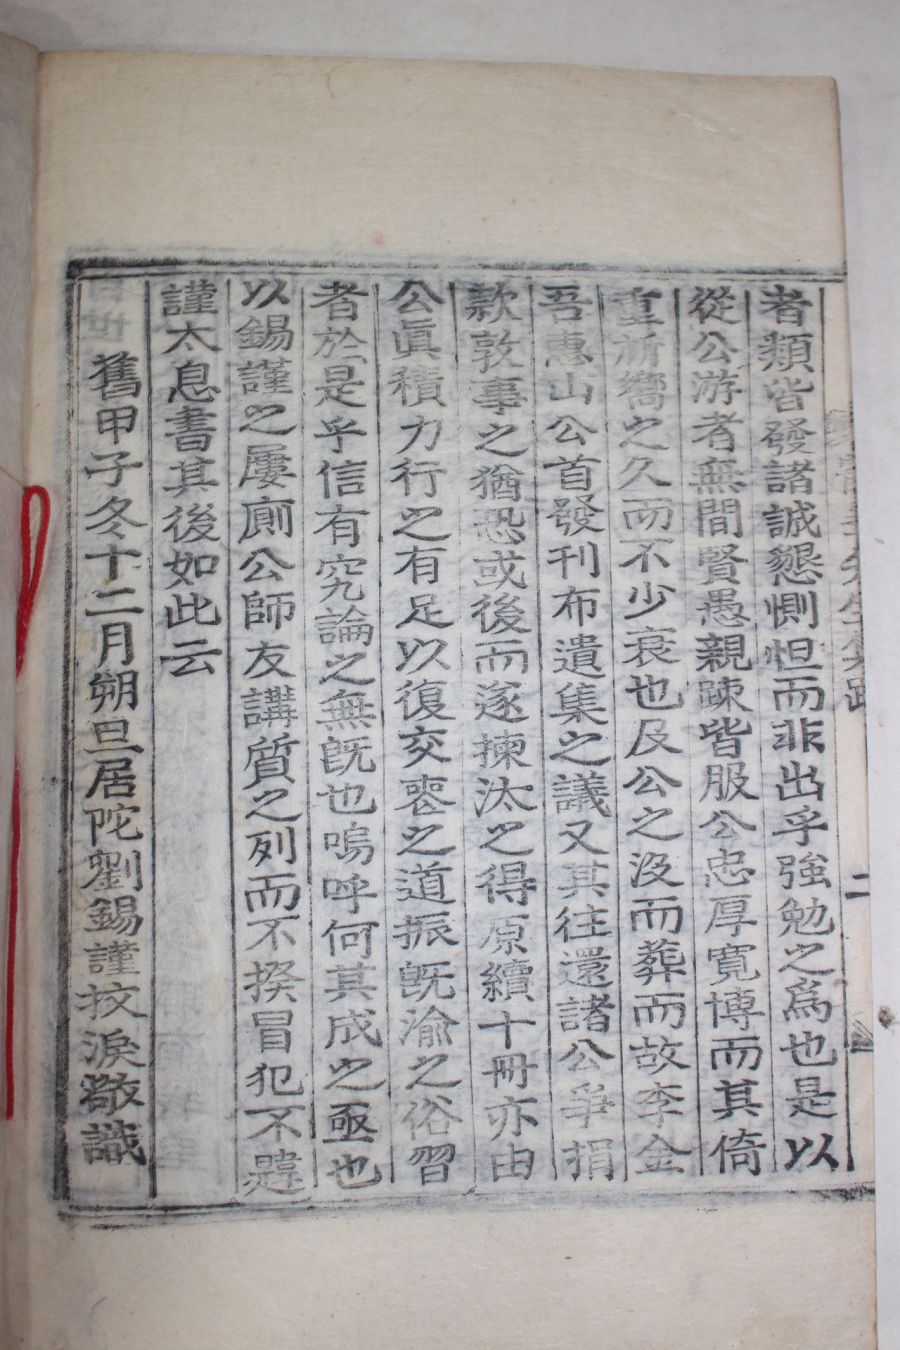 者類皆發諸誠懇惻怛而非出孚強勉之爲也是以
從公游者無間賢愚親踈皆服公忠厚寬博而其倚
重祈嚮之久而不少衰也及公之沒而葬而故李金
吾惠山公首發刊布遺集之議又其往還諸公爭捐
款敦事之猶恐或後而遂揀汰之得原續十冊亦由
公眞積力行之有足以復交喪之道振旣渝之俗習
者於是乎信有究論之無旣也嗚呼何其成之亟也
以錫謹之屢廁公師友講質之列而不揆冒犯不韙
謹太息書其後如此云
舊甲子冬十二月朔旦居陀劉錫謹抆淚敬識
二